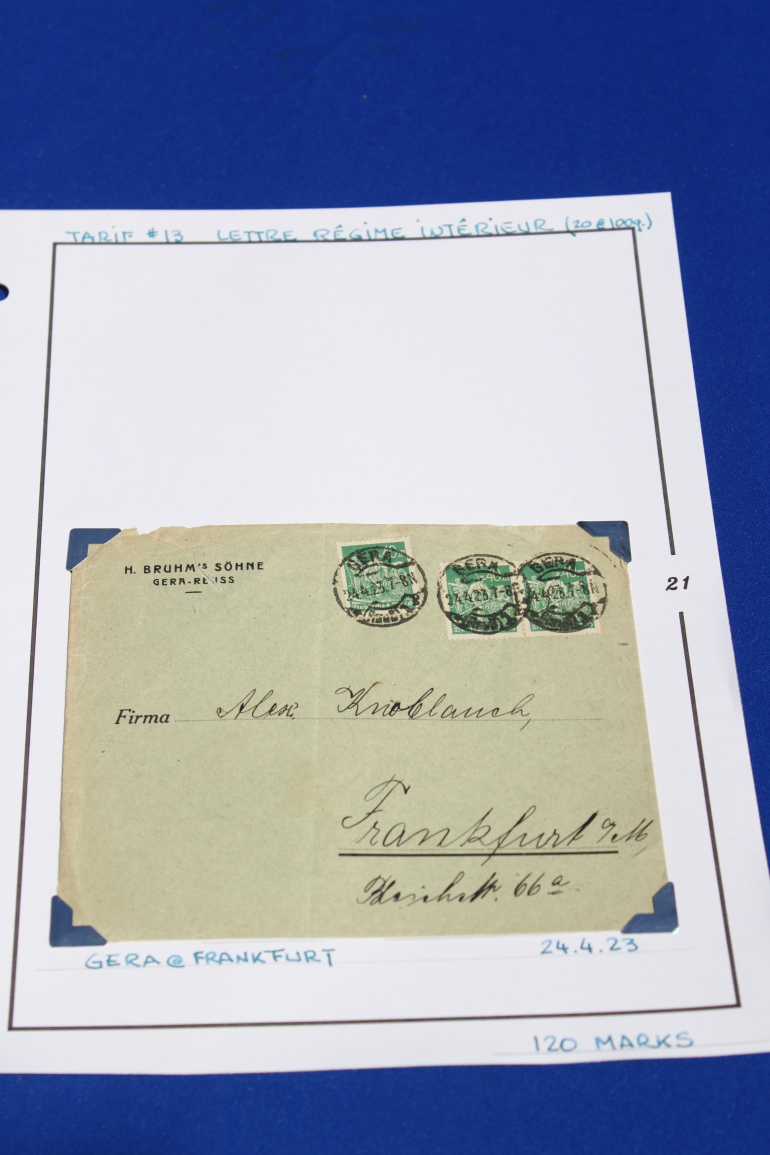 TARIF #13 LETTRE RÉGIME INTÉRIEUR (20 @ 100g.)
H. BRUHM'S SÖHNE
GERA-REUSS
GERA GERA GERA
24.4.23.7-8N 24.4.23.7-8N 24.4.23.7-8N
40M
21
Firma Alex. Knoblauch,
Frankfurt a/M,
66a
GERA @ FRANKFURT 24.4.23
120 MARKS